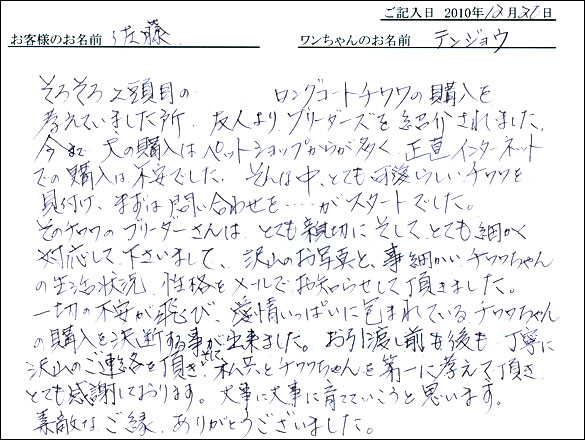 ご記入日 2010年12月21日
お客様のお名前 佐藤 ワンちゃんのお名前 テンジョウ
そろそろ2頭目の ロングコートチワワの購入を
考えていました所、友人よりブリーダーズを紹介されました。
今まで犬の購入はペットショップからが多く、正直インターネット
での購入は不安でした。そんな中、とても可愛いらしいチワワを
見付け、まずは問い合わせを……がスタートでした。
そのチワワのブリーダーさんは、とても親切にそしてとても細かく
対応して下さいまして、沢山のお写真と、事細かいチワワちゃん
の生活状況、性格をメールでお知らせして頂きました。
一切の不安が飛び、愛情いっぱいに包まれているチワワちゃん
の購入を決断する事が出来ました。お引渡し前も後も、丁寧に
沢山のご連絡を頂き、私共とチワワちゃんを第一に考えて頂き
とても感謝しております。大事に大事に育てていこうと思います。
素敵なご縁、ありがとうございました。